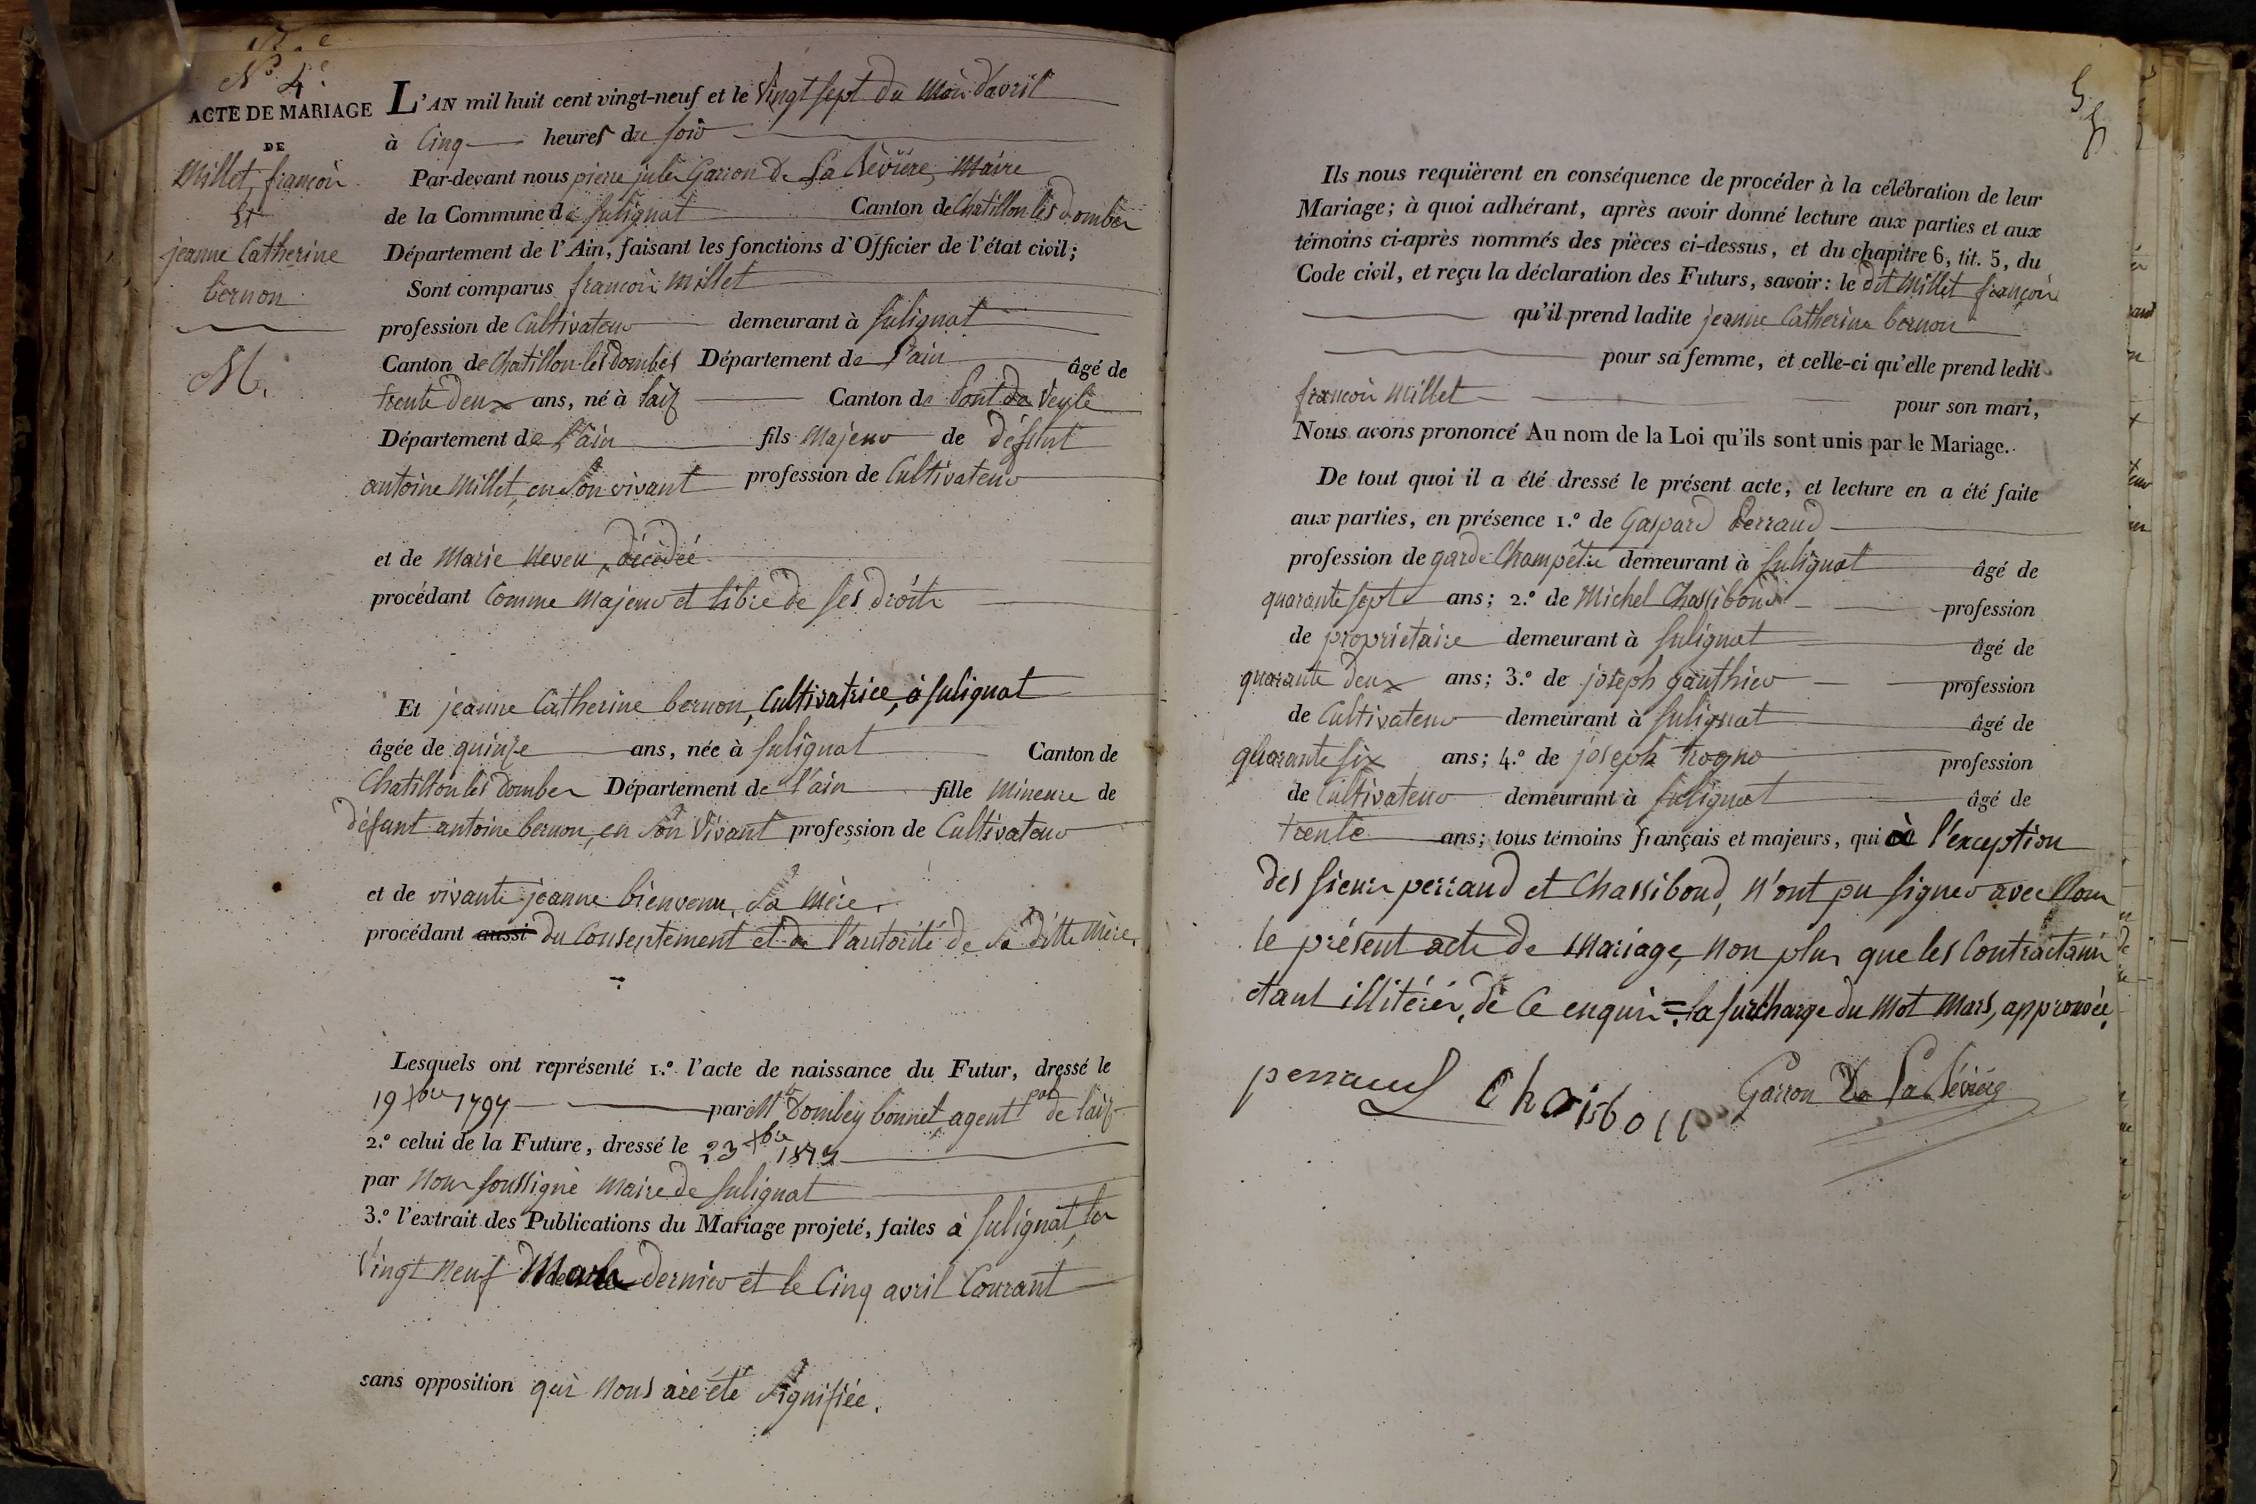 N.º 4.e
ACTE DE MARIAGE
DE
Millet, françois
Et
jeanne Catherine
bernon
M.
L'AN mil huit cent vingt-neuf et le Vingt sept du mois d'avril
à Cinq heures du soir
Par-devant nous pierre jules Garron De La Bévière, Maire
de la Commune de Sulignat Canton de Chatillon les dombes
Département de l'Ain, faisant les fonctions d'Officier de l'état civil;
Sont comparus françois Millet
profession de Cultivateur demeurant à Sulignat
Canton de Chatillon-les Dombes Département de l'ain âgé de
trente deux ans, né à Laiz Canton de Pont de Veyle
Département de l'ain fils Majeur de défunt
antoine Millet, en Son vivant profession de Cultivateur
et de Marie Neveu, décédée
procédant Comme Majeur et libre de Ses droits
Et jeanne Catherine bernon, Cultivatrice, à Sulignat
âgée de quinze ans, née à Sulignat Canton de
Chatillon les Dombes Département de l'ain fille Mineure de
défunt antoine bernon, en Son Vivant profession de Cultivateur
et de vivante jeanne bienvenu, Sa Mère,
procédant aussi du Consentement et de l'autorité de Sa ditte Mère,
Lesquels ont représenté 1.º l'acte de naissance du Futur, dressé le
19 xbre 1797 par Mr Dombey bonnet, agent pal de laiz
2.º celui de la Future, dressé le 23 xbre 1813
par Nous soussigné Maire de Sulignat
3.º l'extrait des Publications du Mariage projeté, faites à Sulignat, les
Vingt neuf Mars dernier et le Cinq avril Courant
sans opposition qui Nous aie été Signifiée.
Ils nous requièrent en conséquence de procéder à la célébration de leur
Mariage; à quoi adhérant, après avoir donné lecture aux parties et aux
témoins ci-après nommés des pièces ci-dessus, et du chapitre 6, tit. 5, du
Code civil, et reçu la déclaration des Futurs, savoir: le dit Millet françois
qu'il prend ladite jeanne Catherine bernon
pour sa femme, et celle-ci qu'elle prend ledit
françois Millet pour son mari,
Nous avons prononcé Au nom de la Loi qu'ils sont unis par le Mariage.
De tout quoi il a été dressé le présent acte, et lecture en a été faite
aux parties, en présence 1.º de Gaspard Perraud
profession de garde Champêtre demeurant à Sulignat âgé de
quarante sept ans; 2.º de Michel Chassiboud profession
de propriétaire demeurant à Sulignat âgé de
quarante deux ans; 3.º de joseph gauthier profession
de Cultivateur demeurant à Sulignat âgé de
quarante six ans; 4.º de joseph profession
de Cultivateur demeurant à Sulignat âgé de
trente ans; tous témoins français et majeurs, qui à l'exception
des Sieurs perraud et Chassiboud, n'ont pu Signer avec Nous
le présent acte de Mariage, Non plus que les Contractants
étant illitérés, de Ce enquis = la surcharge du Mot Mars, approuvée.
perraud Garron De La Bévière